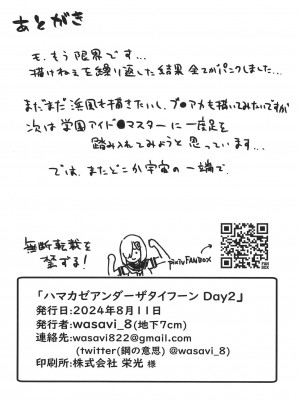 あとがき
モ、もう限界です…
描けねぇを繰り返した結果全てがパンクしました…
まだまだ浜風も描きたいし、ブ●アカも描いてみたいですが
次は学園アイド●マスターに一度足を
踏み入れてみようと思っています…
では、またどこか宇宙の一端で。
無断転載を
禁ずる!
pixivFANBOX
「ハマカゼアンダーザタイフーン Day2」
発行日:2024年8月11日
発行者:wasavi_8(地下7cm)
連絡先:wasavi822@gmail.com
(twitter(鋼の意思) @wasavi_8)
印刷所:株式会社 栄光 様